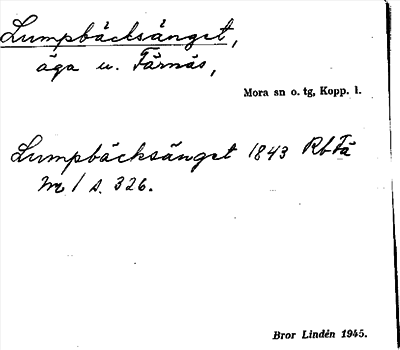 Lumpbäcksänget,
äga u. Färnäs,
Mora sn o. tg, Kopp. l.
Lumpbäcksänget 1843 Rb Fä
m 1 s. 326.
Bror Lindén 1945.